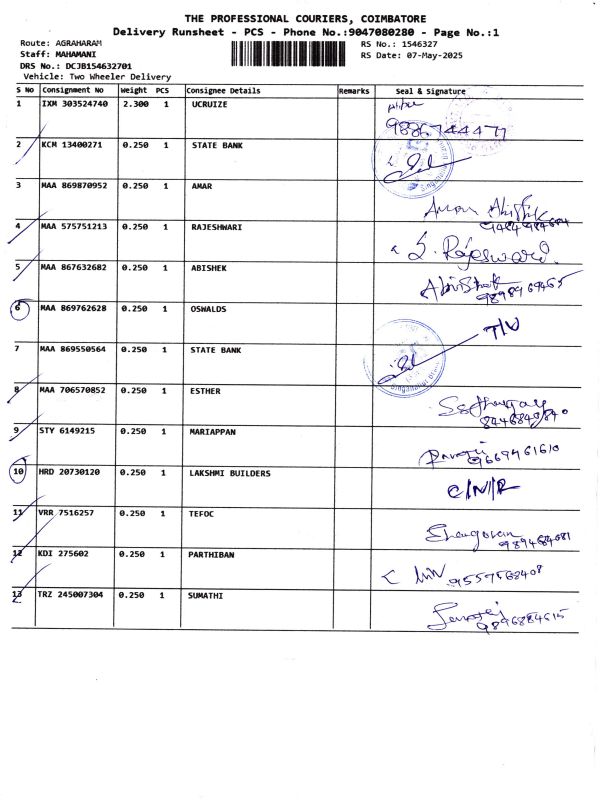 THE PROFESSIONAL COURIERS, COIMBATORE
Delivery Runsheet - PCS - Phone No.:9047080280 - Page No.:1
Route: AGRAHARAM
RS No.: 1546327
Staff: MAHAMANI
RS Date: 07-May-2025
DRS No.: DCJB154632701
Vehicle: Two Wheeler Delivery
S No Consignment No Weight PCS Consignee Details Remarks Seal & Signature
1 IXM 303524740 2.300 1 UCRUIZE
9886744477
2 KCM 13400271 0.250 1 STATE BANK
3 MAA 869870952 0.250 1 AMAR
Abishik
4 MAA 575751213 0.250 1 RAJESHWARI
S. Rajeswari
5 MAA 867632682 0.250 1 ABISHEK
Abishek
9898969465
6 MAA 869762628 0.250 1 OSWALDS
7 MAA 869550564 0.250 1 STATE BANK
8 MAA 706570852 0.250 1 ESTHER
9 STY 6149215 0.250 1 MARIAPPAN
9669461610
10 HRD 20730120 0.250 1 LAKSHMI BUILDERS
C/N/R
11 VRR 7516257 0.250 1 TEFOC
9894684081
12 KDI 275602 0.250 1 PARTHIBAN
9557568408
13 TRZ 245007304 0.250 1 SUMATHI
9896884615